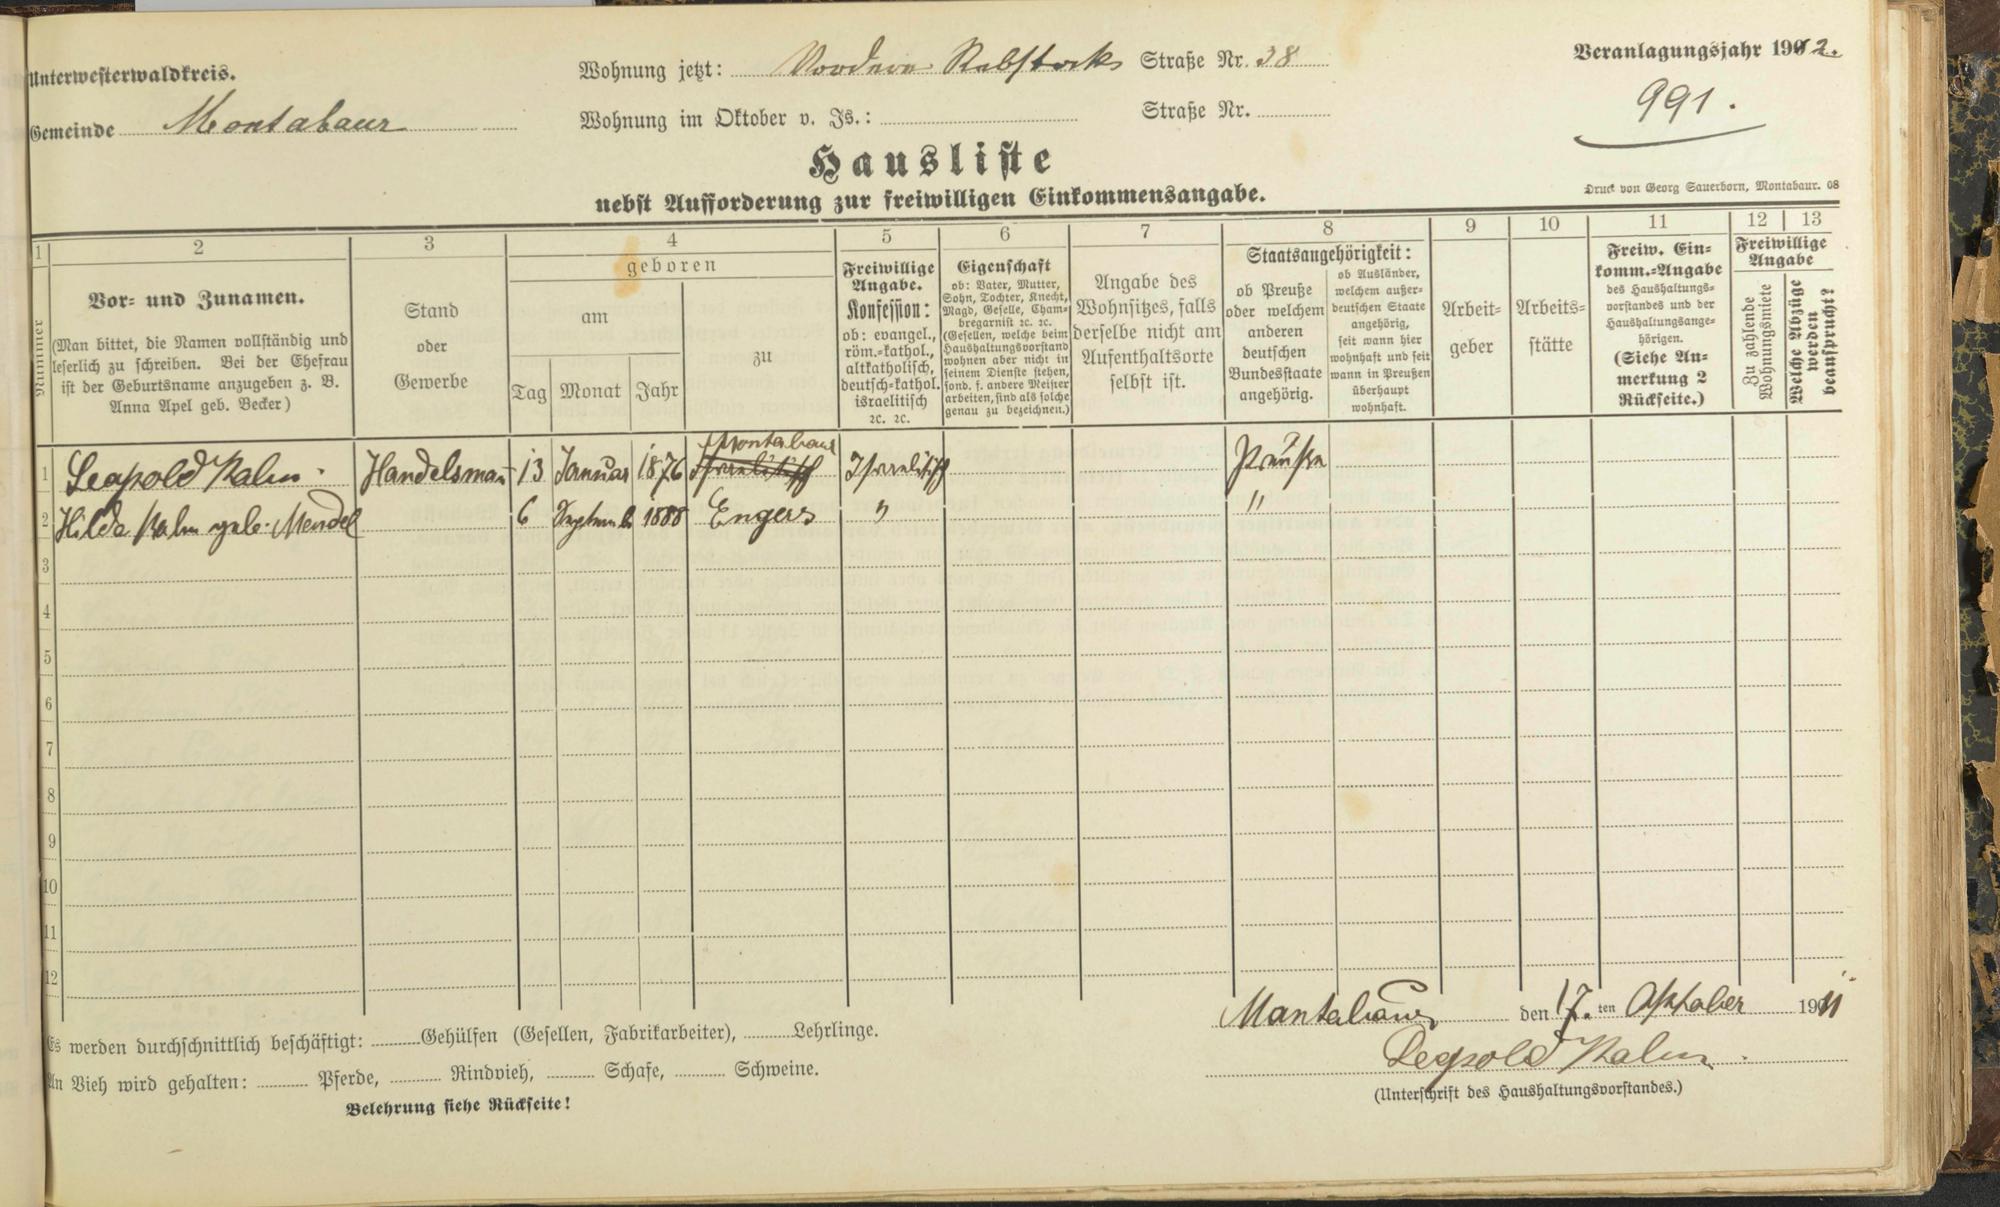 Unterwesterwaldkreis.
Gemeinde Montabaur
Wohnung jetzt: Vordere Rebstock Straße Nr. 38
Wohnung im Oktober v. Js.: Straße Nr.
Veranlagungsjahr 1912.
991.
Hausliste
nebst Aufforderung zur freiwilligen Einkommensangabe.
Druck von Georg Sauerborn, Montabaur. 08
1 2 3 4 5 6 7 8 9 10 11 12 13
Nummer
Vor- und Zunamen.
(Man bittet, die Namen vollständig und
leserlich zu schreiben. Bei der Ehefrau
ist der Geburtsname anzugeben z. B.
Anna Apel geb. Becker)
Stand
oder
Gewerbe
geboren
am
Tag Monat Jahr
zu
Freiwillige
Angabe.
Konfession:
ob: evangel.,
röm.-kathol.,
altkatholisch,
deutsch-kathol.
israelitisch
ꝛc. ꝛc.
Eigenschaft
ob: Vater, Mutter,
Sohn, Tochter, Knecht,
Magd, Geselle, Cham-
bregarnist ꝛc. ꝛc.
(Gesellen, welche beim
Haushaltungsvorstand
wohnen aber nicht in
seinem Dienste stehen,
sond. f. andere Meister
arbeiten, sind als solche
genau zu bezeichnen.)
Angabe des
Wohnsitzes, falls
derselbe nicht am
Aufenthaltsorte
selbst ist.
Staatsangehörigkeit:
ob Preuße
oder welchem
anderen
deutschen
Bundesstaate
angehörig.
ob Ausländer,
welchem außer-
deutschen Staate
angehörig,
seit wann hier
wohnhaft und seit
wann in Preußen
überhaupt
wohnhaft.
Arbeit-
geber
Arbeits-
stätte
Freiw. Ein-
komm.-Angabe
des Haushaltungs-
vorstandes und der
Haushaltungsange-
hörigen.
(Siehe An-
merkung 2
Rückseite.)
Freiwillige
Angabe
Zu zahlende
Wohnungsmiete
Welche Abzüge
werden
beansprucht?
Montabaur
1 Leopold Kahn. Handelsman 13 Januar 1876 Israelitisch Israelitisch Preuße
2 Hilda Kahn geb. Mendel 6 Septemb 1888 Engers " "
3
4
5
6
7
8
9
10
11
12
Montabaur den 17. ten Oktober 1911
Leopold Kahn.
(Unterschrift des Haushaltungsvorstandes.)
Es werden durchschnittlich beschäftigt: Gehülfen (Gesellen, Fabrikarbeiter), Lehrlinge.
An Vieh wird gehalten: Pferde, Rindvieh, Schafe, Schweine.
Belehrung siehe Rückseite!